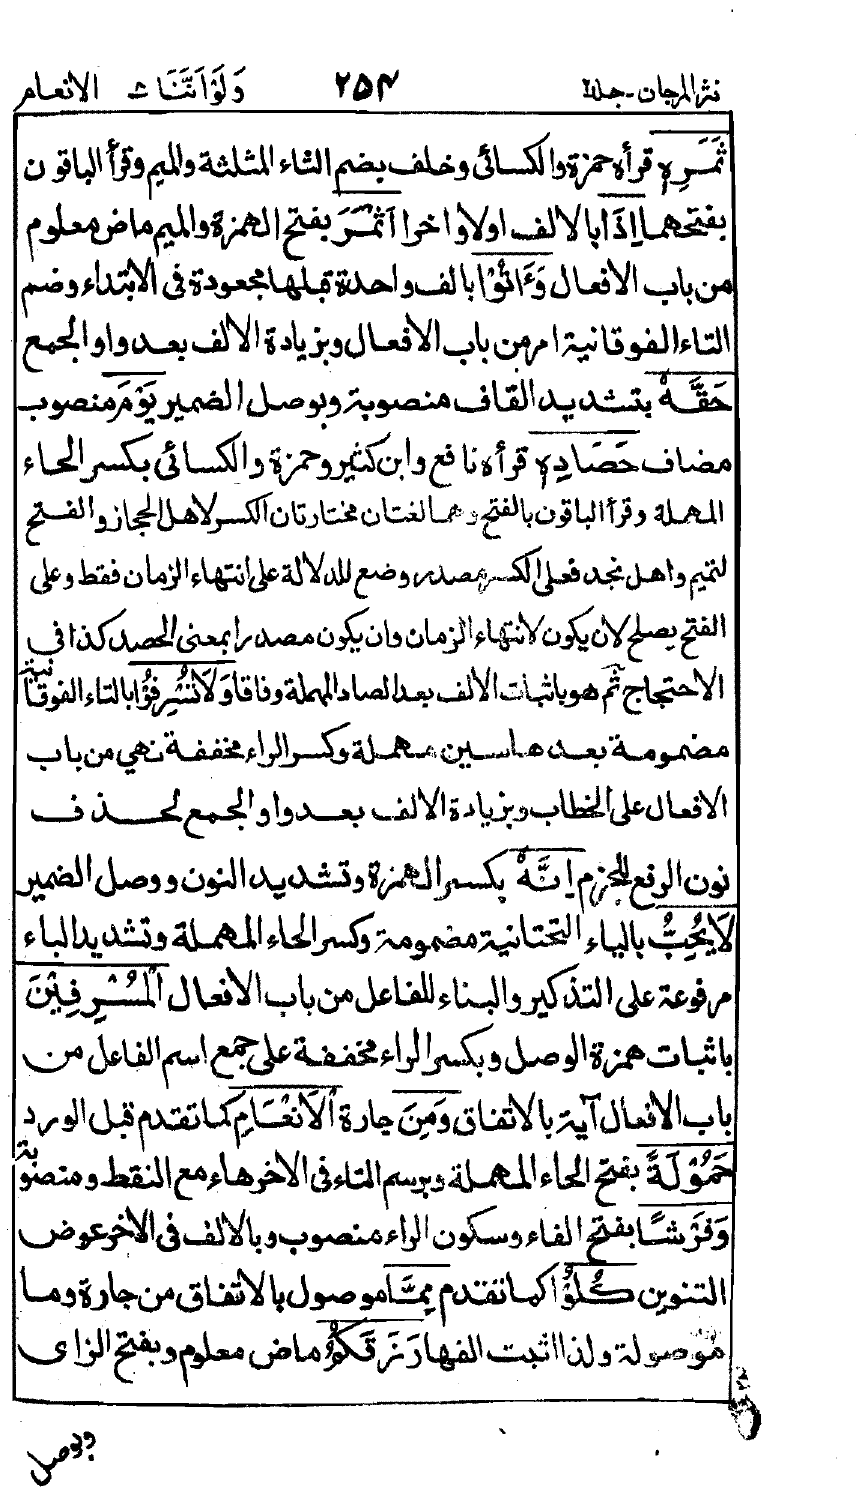 نثر المرجان - جلد۲ ۲۵۴ وَلَوْ اَنَّنَا ۸ الانعام
ثَمَرِهٖ قرأه حمزة والكسائى وخلف بضم الثاء المثلثة والميم وقرأ الباقون
بفتحهما اِذَا بالالف اولا واخرا اَثْمَرَ بفتح الهمزة والميم ماض معلوم
من باب الافعال وَءَاتُوْا بالف واحدة قبلها مجعودة فى الابتداء وضم
التاء الفوقانية امر من باب الافعال وبزيادة الالف بعد واو الجمع
حَقَّهٗ بتشديد القاف منصوبة وبوصل الضمير يَوْمَ منصوب
مضاف حَصَادِهٖ قرأه نافع وابن كثير وحمزة والكسائى بكسر الحاء
المهملة وقرأ الباقون بالفتح وهما لغتان مختارتان الكسر لاهل الحجاز والفتح
لتميم واهل نجد فعلى الكسر مصدر وضع للدلالة على انتهاء الزمان فقط وعلى
الفتح يصلح لان يكون لانتهاء الزمان وان يكون مصدرا بمعنى الحصد كذا فى
الاحتجاج ثم هو باثبات الالف بعد الصاد المهملة وفاقا وَلَا تُسْرِفُوْا بالتاء الفوقانية
مضمومة بعدها سين مهملة وكسر الراء مخففة نهى من باب
الافعال على الخطاب وبزيادة الالف بعد واو الجمع لحذف
نون الرفع للجزم اِنَّهٗ بكسر الهمزة وتشديد النون ووصل الضمير
لَا يُحِبُّ بالياء التحتانية مضمومة وكسر الحاء المهملة وتشديد الباء
مرفوعة على التذكير والبناء للفاعل من باب الافعال الْمُسْرِفِيْنَ
باثبات همزة الوصل وبكسر الراء مخففة على جمع اسم الفاعل من
باب الافعال آية بالاتفاق وَمِنَ جارة الْاَنْعَامِ كما تقدم قبل الورد
حَمُوْلَةً بفتح الحاء المهملة وبرسم التاء فى الاخر هاء مع النقط ومنصوبة
وَفَرْشًا بفتح الفاء وسكون الراء منصوب وبالالف فى الاخر عوض
التنوين كُلُوْا كما تقدم مِمَّا موصول بالاتفاق من جارة وما
موصولة ولذا اثبت الفها رَزَقَكُمُ ماض معلوم وبفتح الزاى
وبوصل